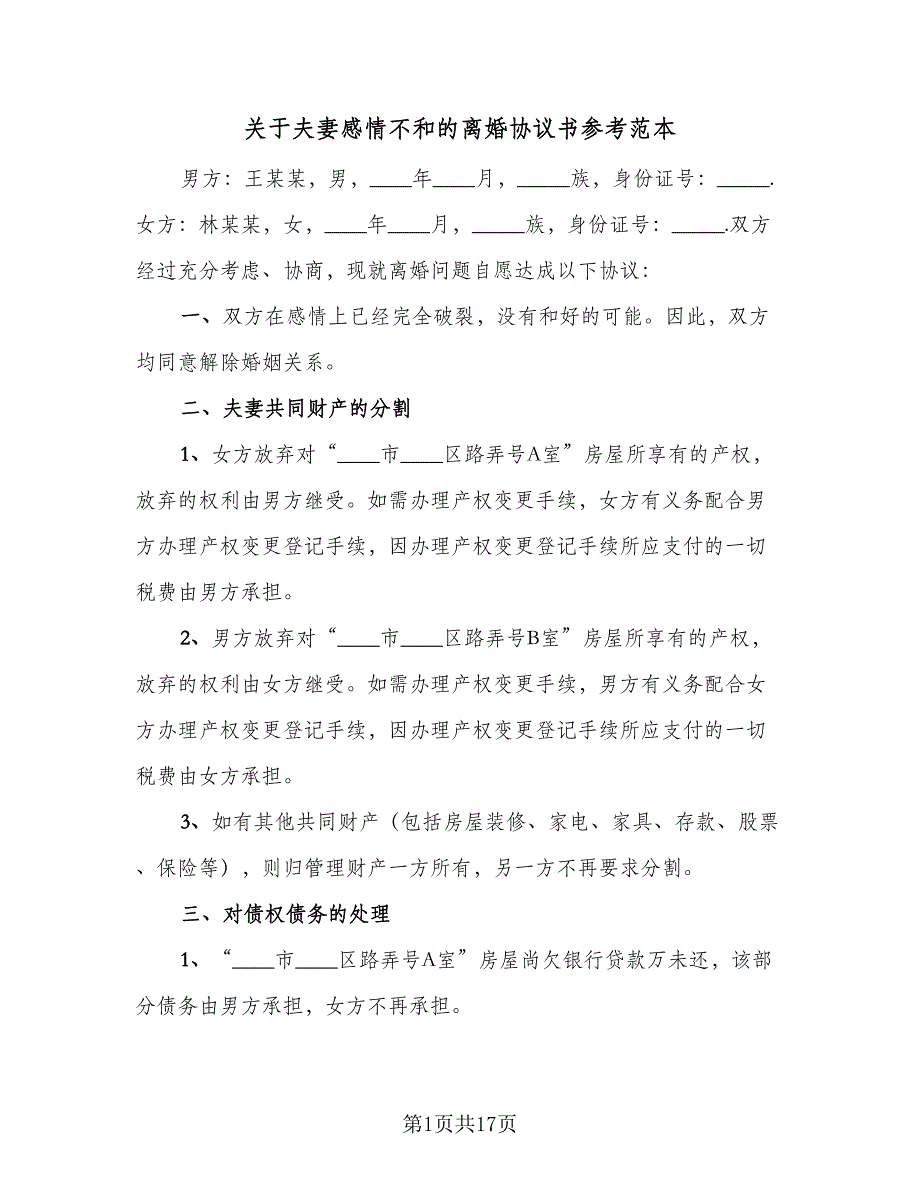 关于夫妻感情不和的离婚协议书参考范本
男方：王某某，男，____年____月，_____族，身份证号：_____.
女方：林某某，女，____年____月，_____族，身份证号：_____.双方
经过充分考虑、协商，现就离婚问题自愿达成以下协议：
一、双方在感情上已经完全破裂，没有和好的可能。因此，双方
均同意解除婚姻关系。
二、夫妻共同财产的分割
1、女方放弃对“____市____区路弄号A室”房屋所享有的产权，
放弃的权利由男方继受。如需办理产权变更手续，女方有义务配合男
方办理产权变更登记手续，因办理产权变更登记手续所应支付的一切
税费由男方承担。
2、男方放弃对“____市____区路弄号B室”房屋所享有的产权，
放弃的权利由女方继受。如需办理产权变更手续，男方有义务配合女
方办理产权变更登记手续，因办理产权变更登记手续所应支付的一切
税费由女方承担。
3、如有其他共同财产（包括房屋装修、家电、家具、存款、股票
、保险等），则归管理财产一方所有，另一方不再要求分割。
三、对债权债务的处理
1、“____市____区路弄号A室”房屋尚欠银行贷款万未还，该部
分债务由男方承担，女方不再承担。
第1页共17页